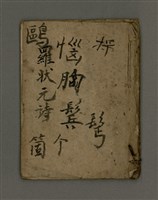 採髩
惱胸鬂个
鷗羅狀元詩箇